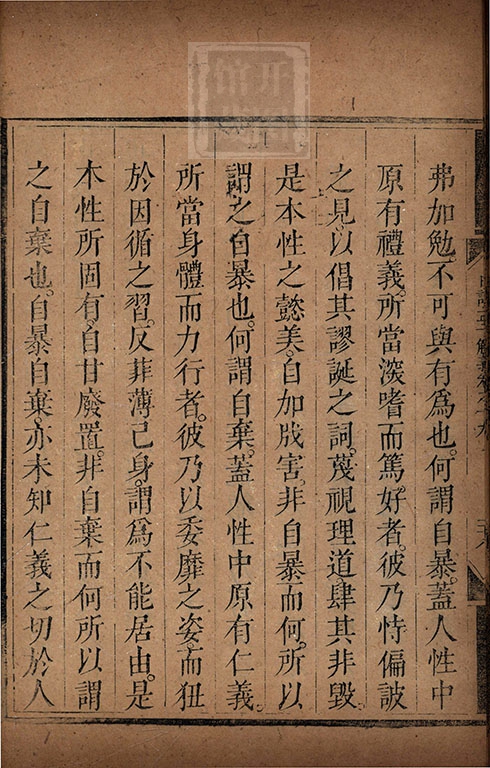 弗加勉。不可與有爲也。何謂自暴。蓋人性中
原有禮義。所當深嗜而篤好者。彼乃恃偏詖
之見。以倡其謬誕之詞。蔑視理道。肆其非毀。
是本性之懿美。自加戕害。非自暴而何。所以
謂之自暴也。何謂自棄。蓋人性中原有仁義。
所當身體而力行者。彼乃以委靡之姿。而狃
於因循之習。反菲薄己身。謂爲不能居由。是
本性所固有。自甘廢置。非自棄而何。所以謂
之自棄也。自暴自棄。亦未知仁義之切於人